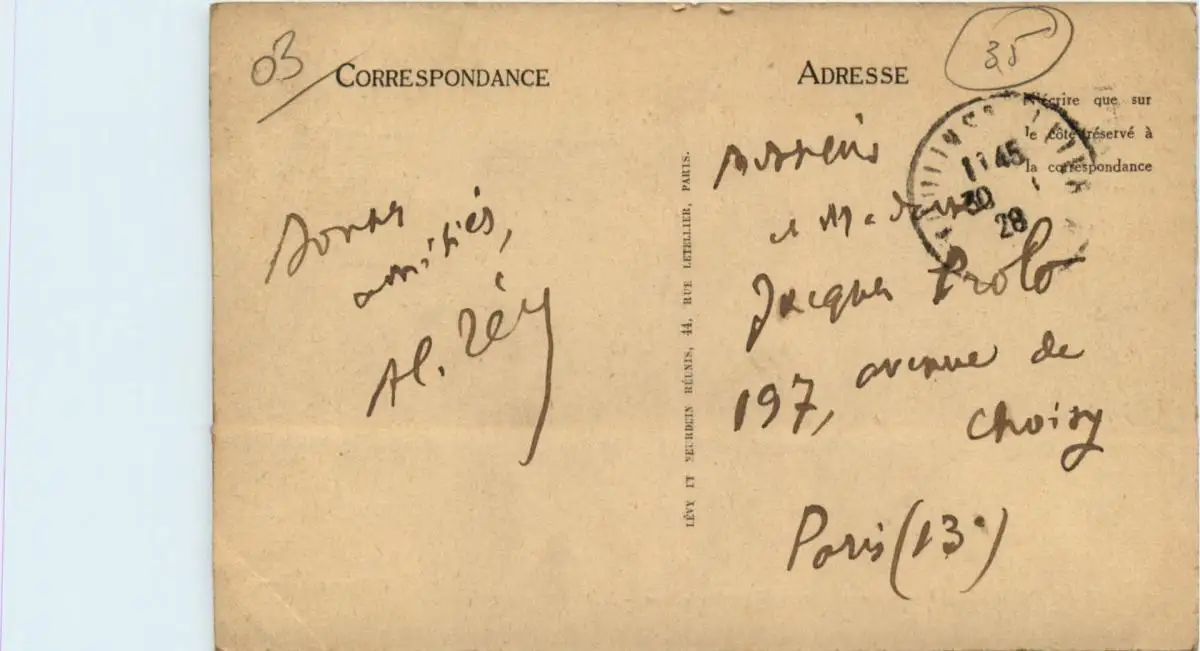 03
CORRESPONDANCE
Bonnes
amitiés,
Al. Zéy
LÉVY ET NEURDEIN RÉUNIS, 44, RUE LETELLIER, PARIS.
ADRESSE
35
N'écrire que sur
le côté réservé à
la correspondance
MOULINS ALLIER
11 45
30
28
Monsieur
et Madame
Jacques Prolo
197, avenue de
Choisy
Paris (13e)